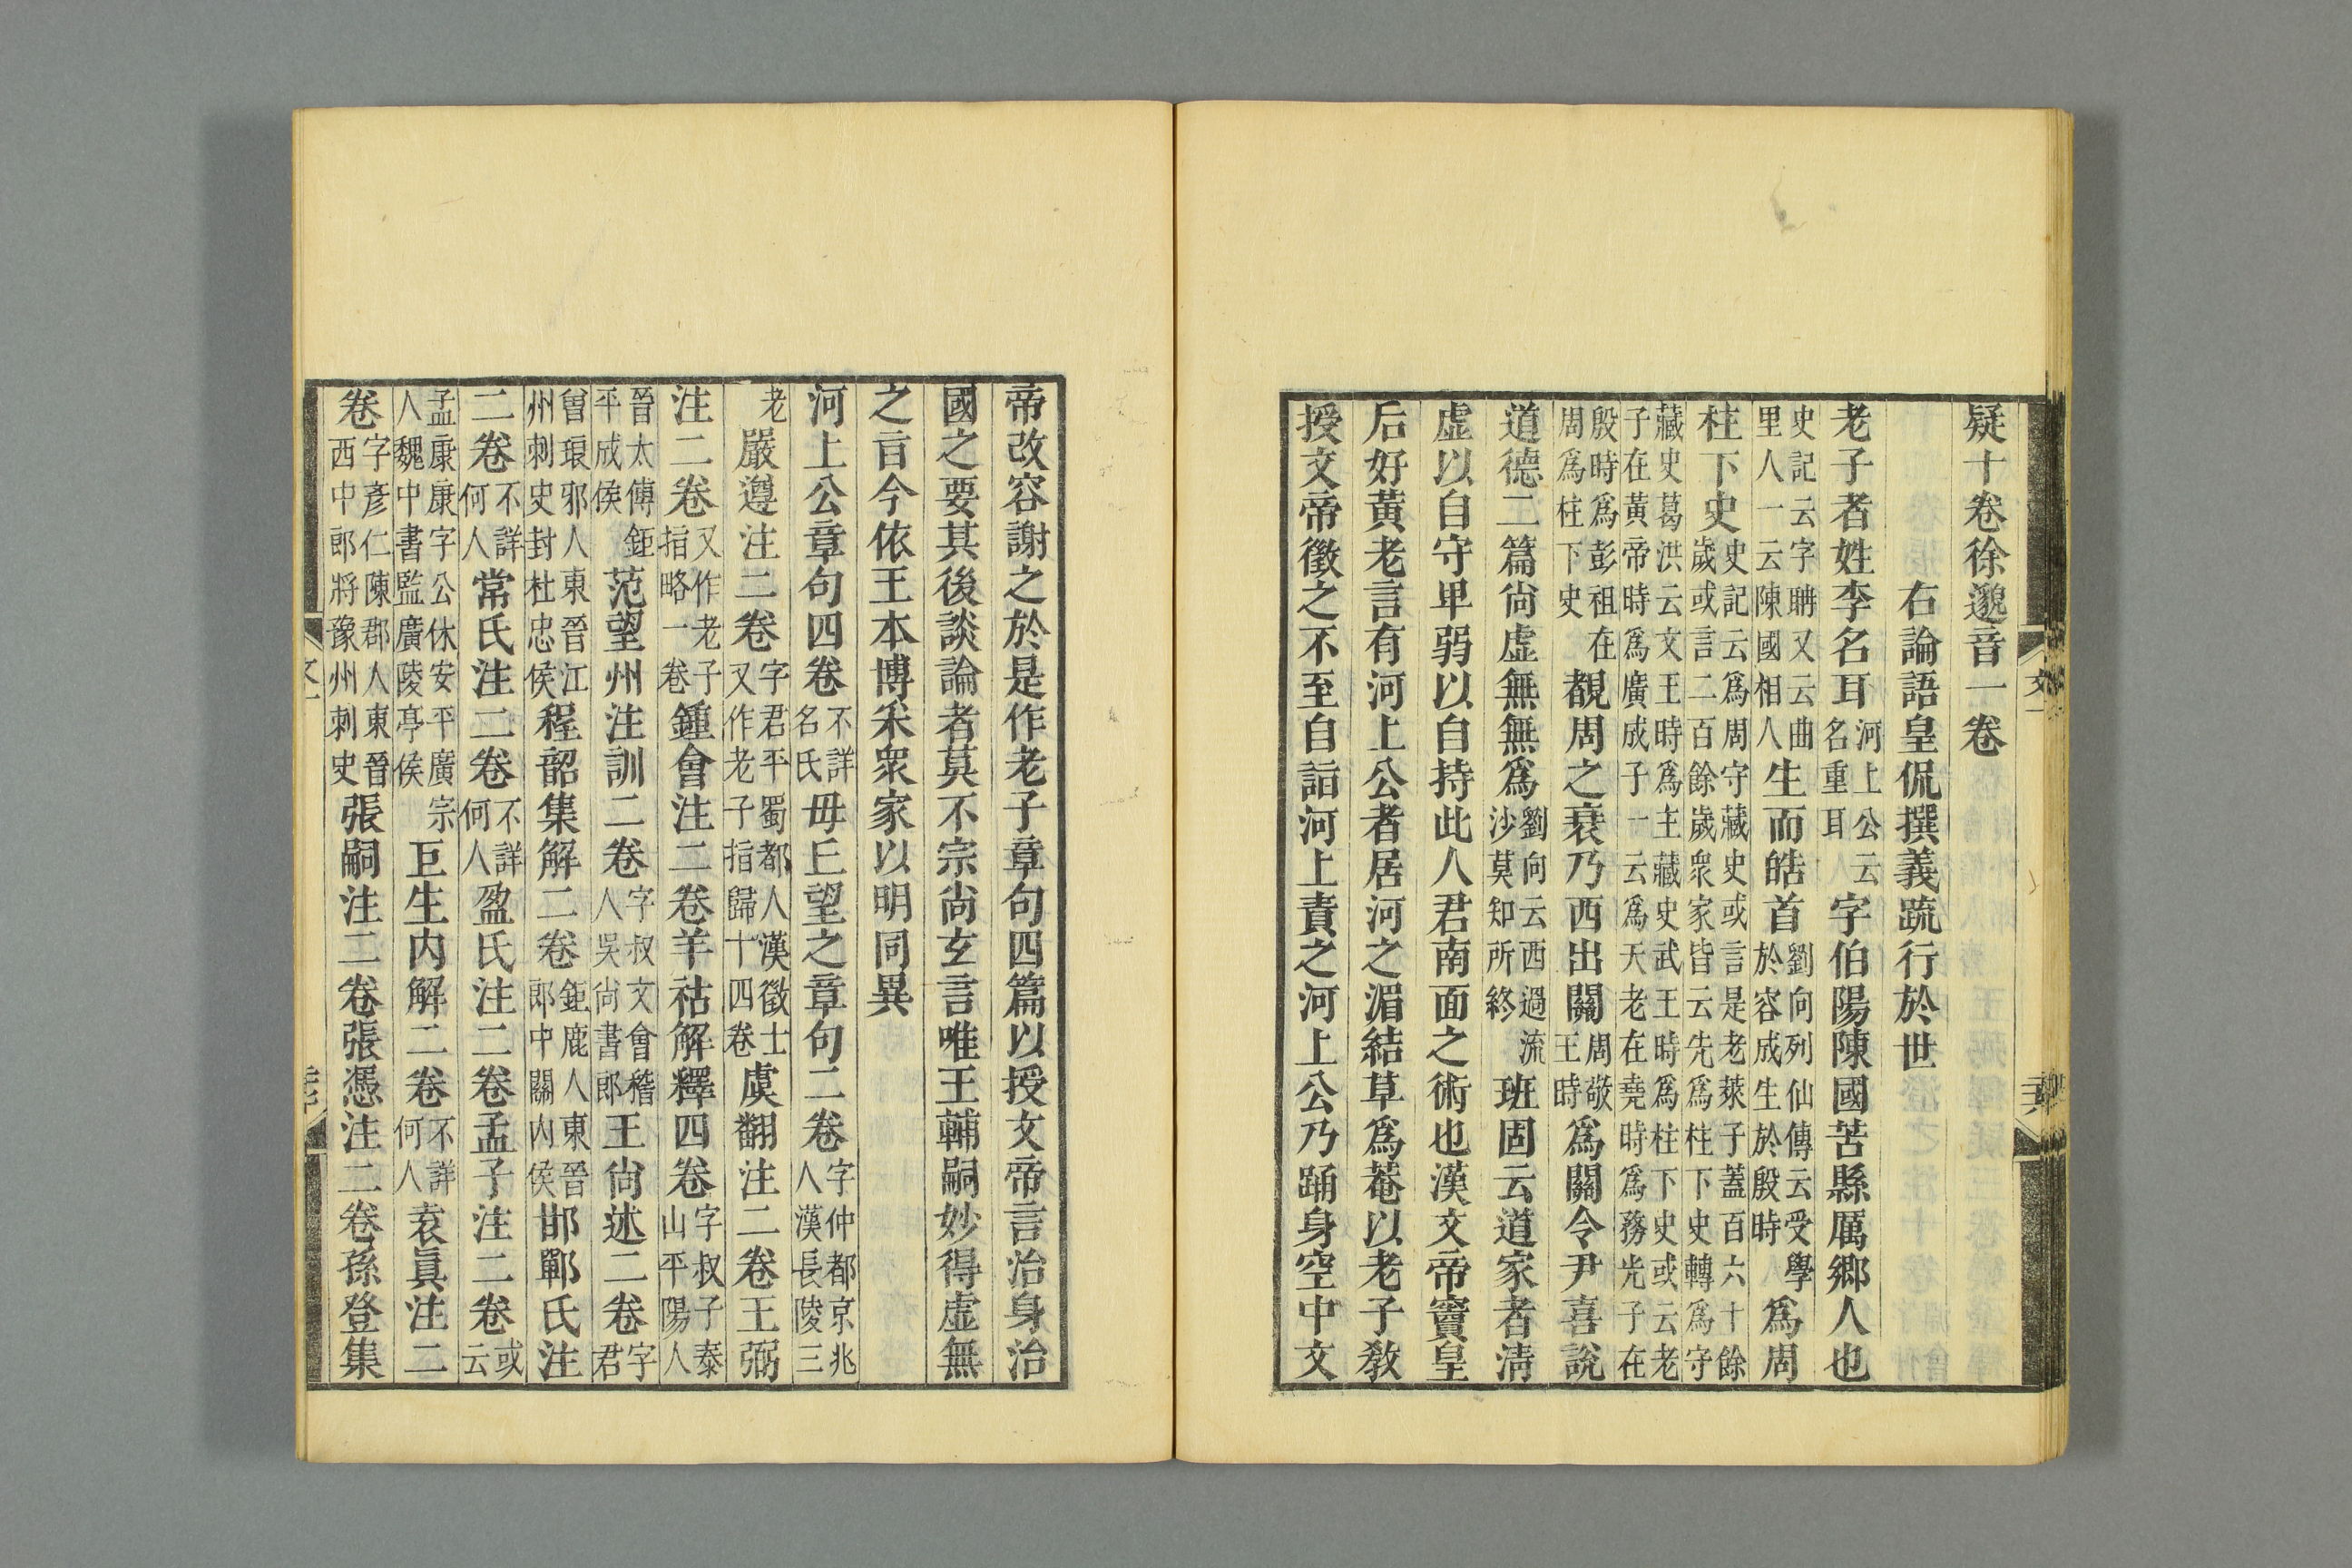 疑十卷徐邈音一卷
右論語皇侃撰義䟽行於世
老子者姓李名耳河上公云名重耳字伯陽陳國苦縣厲鄉人也
史記云字聃又云曲里人一云陳國相人生而皓首劉向列仙傳云受學於容成生於殷時爲周
柱下史史記云爲周守藏史或言是老萊子蓋百六十餘歲或言二百餘歲衆家皆云先爲柱下史轉爲守
藏史葛洪云文王時爲主藏史武王時爲柱下史或云老子在黃帝時爲廣成子一云爲天老在堯時爲務光子在
殷時爲彭祖在周爲柱下史覩周之衰乃西出關周敬王時爲關令尹喜說
道德二篇尚虛無無爲劉向云西過流沙莫知所終班固云道家者淸
虛以自守卑弱以自持此人君南面之術也漢文帝竇皇
后好黃老言有河上公者居河之湄結草爲菴以老子敎
授文帝徵之不至自詣河上責之河上公乃踊身空中文
帝改容謝之於是作老子章句四篇以授文帝言治身治
國之要其後談論者莫不宗尚玄言唯王輔嗣妙得虛無
之旨今依王本博釆衆家以明同異
河上公章句四卷不詳名氏毋丘望之章句二卷字仲都京兆人漢長陵三
老嚴遵注二卷字君平蜀都人漢徵士又作老子指歸十四卷虞翻注二卷王弼
注二卷又作老子指略一卷鍾會注二卷羊祜解釋四卷字叔子泰山平陽人
晉太傅鉅平成侯范望州注訓二卷字叔文會稽人吳尚書郎王尚述二卷字君
曾琅邪人東晉江州刺史封杜忠侯程韶集解二卷鉅鹿人東晉郎中關內侯邯鄲氏注
二卷不詳何人常氏注二卷不詳何人盈氏注二卷孟子注二卷或云
孟康康字公休安平廣宗人魏中書監廣陵亭侯巨生内解二卷不詳何人袁眞注二
卷字彥仁陳郡人東晉西中郎將豫州刺史張嗣注二卷張憑注二卷孫登集